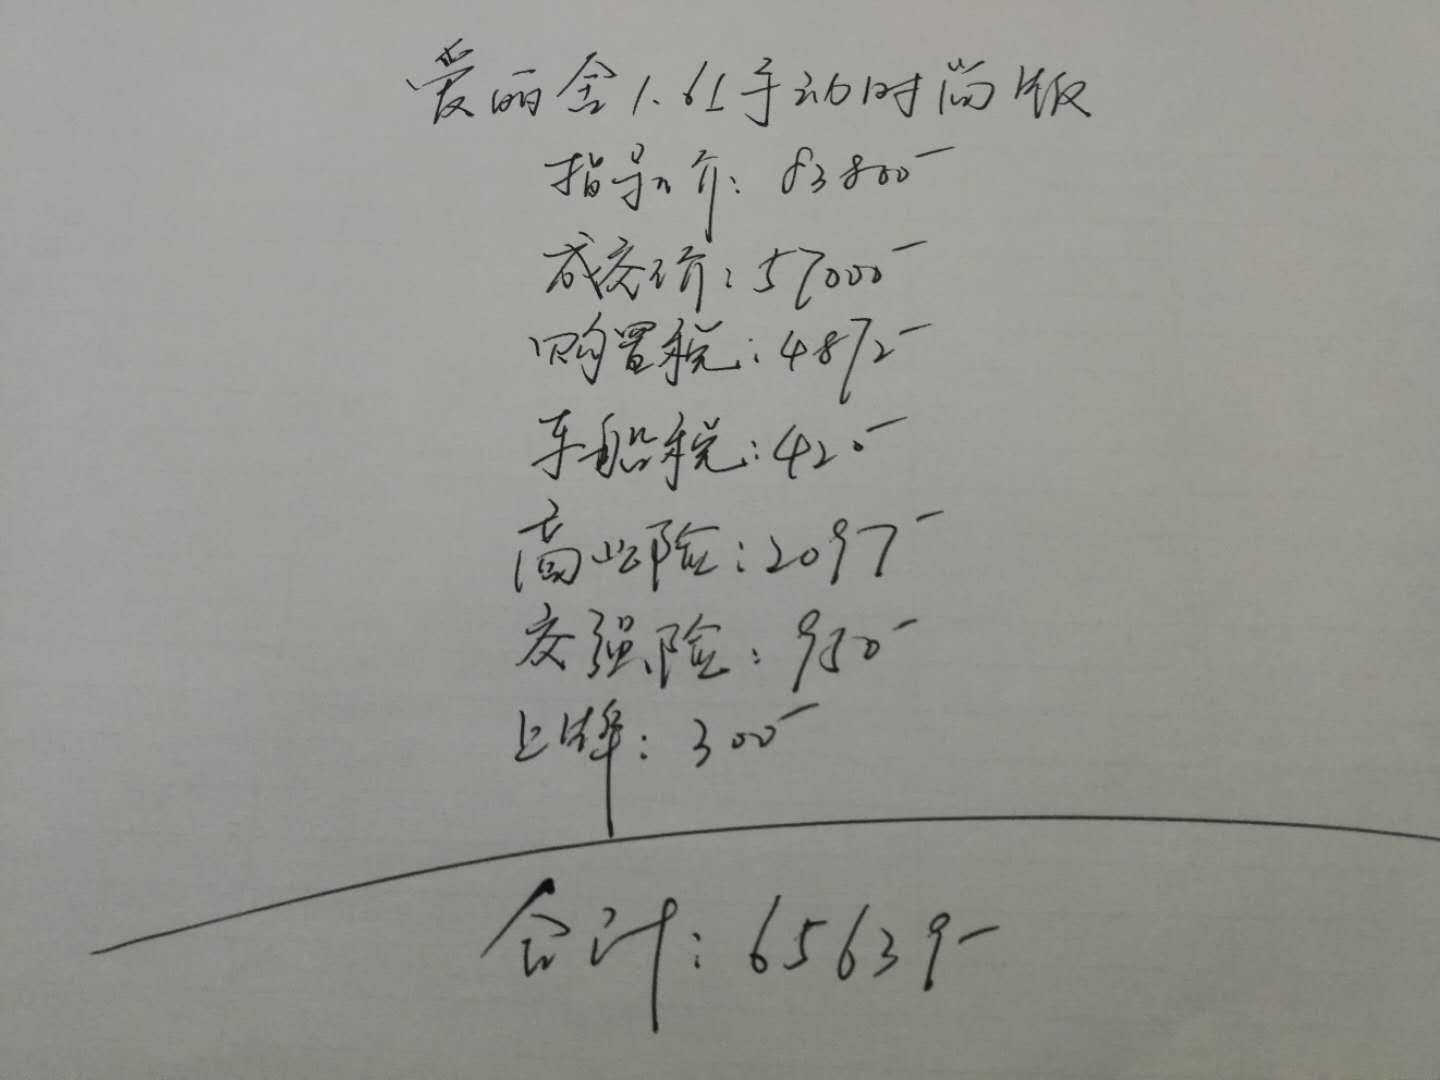 爱丽舍1.6L手动时尚版
指导价: 83800-
成交价: 57000-
购置税: 4872-
车船税: 420-
商业险: 2097-
交强险: 950-
上牌: 300-
合计: 65639-